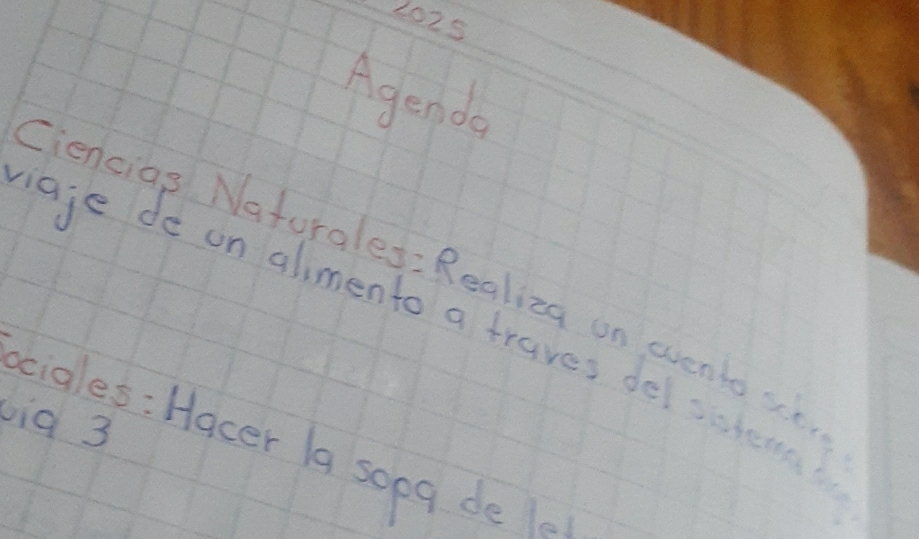 2025
Agenda
Ciencias Naturales: Realiza un cuento sobre:
viaje de un alimento a traves del sistema
Sociales: Hacer la sopa de
guia 3